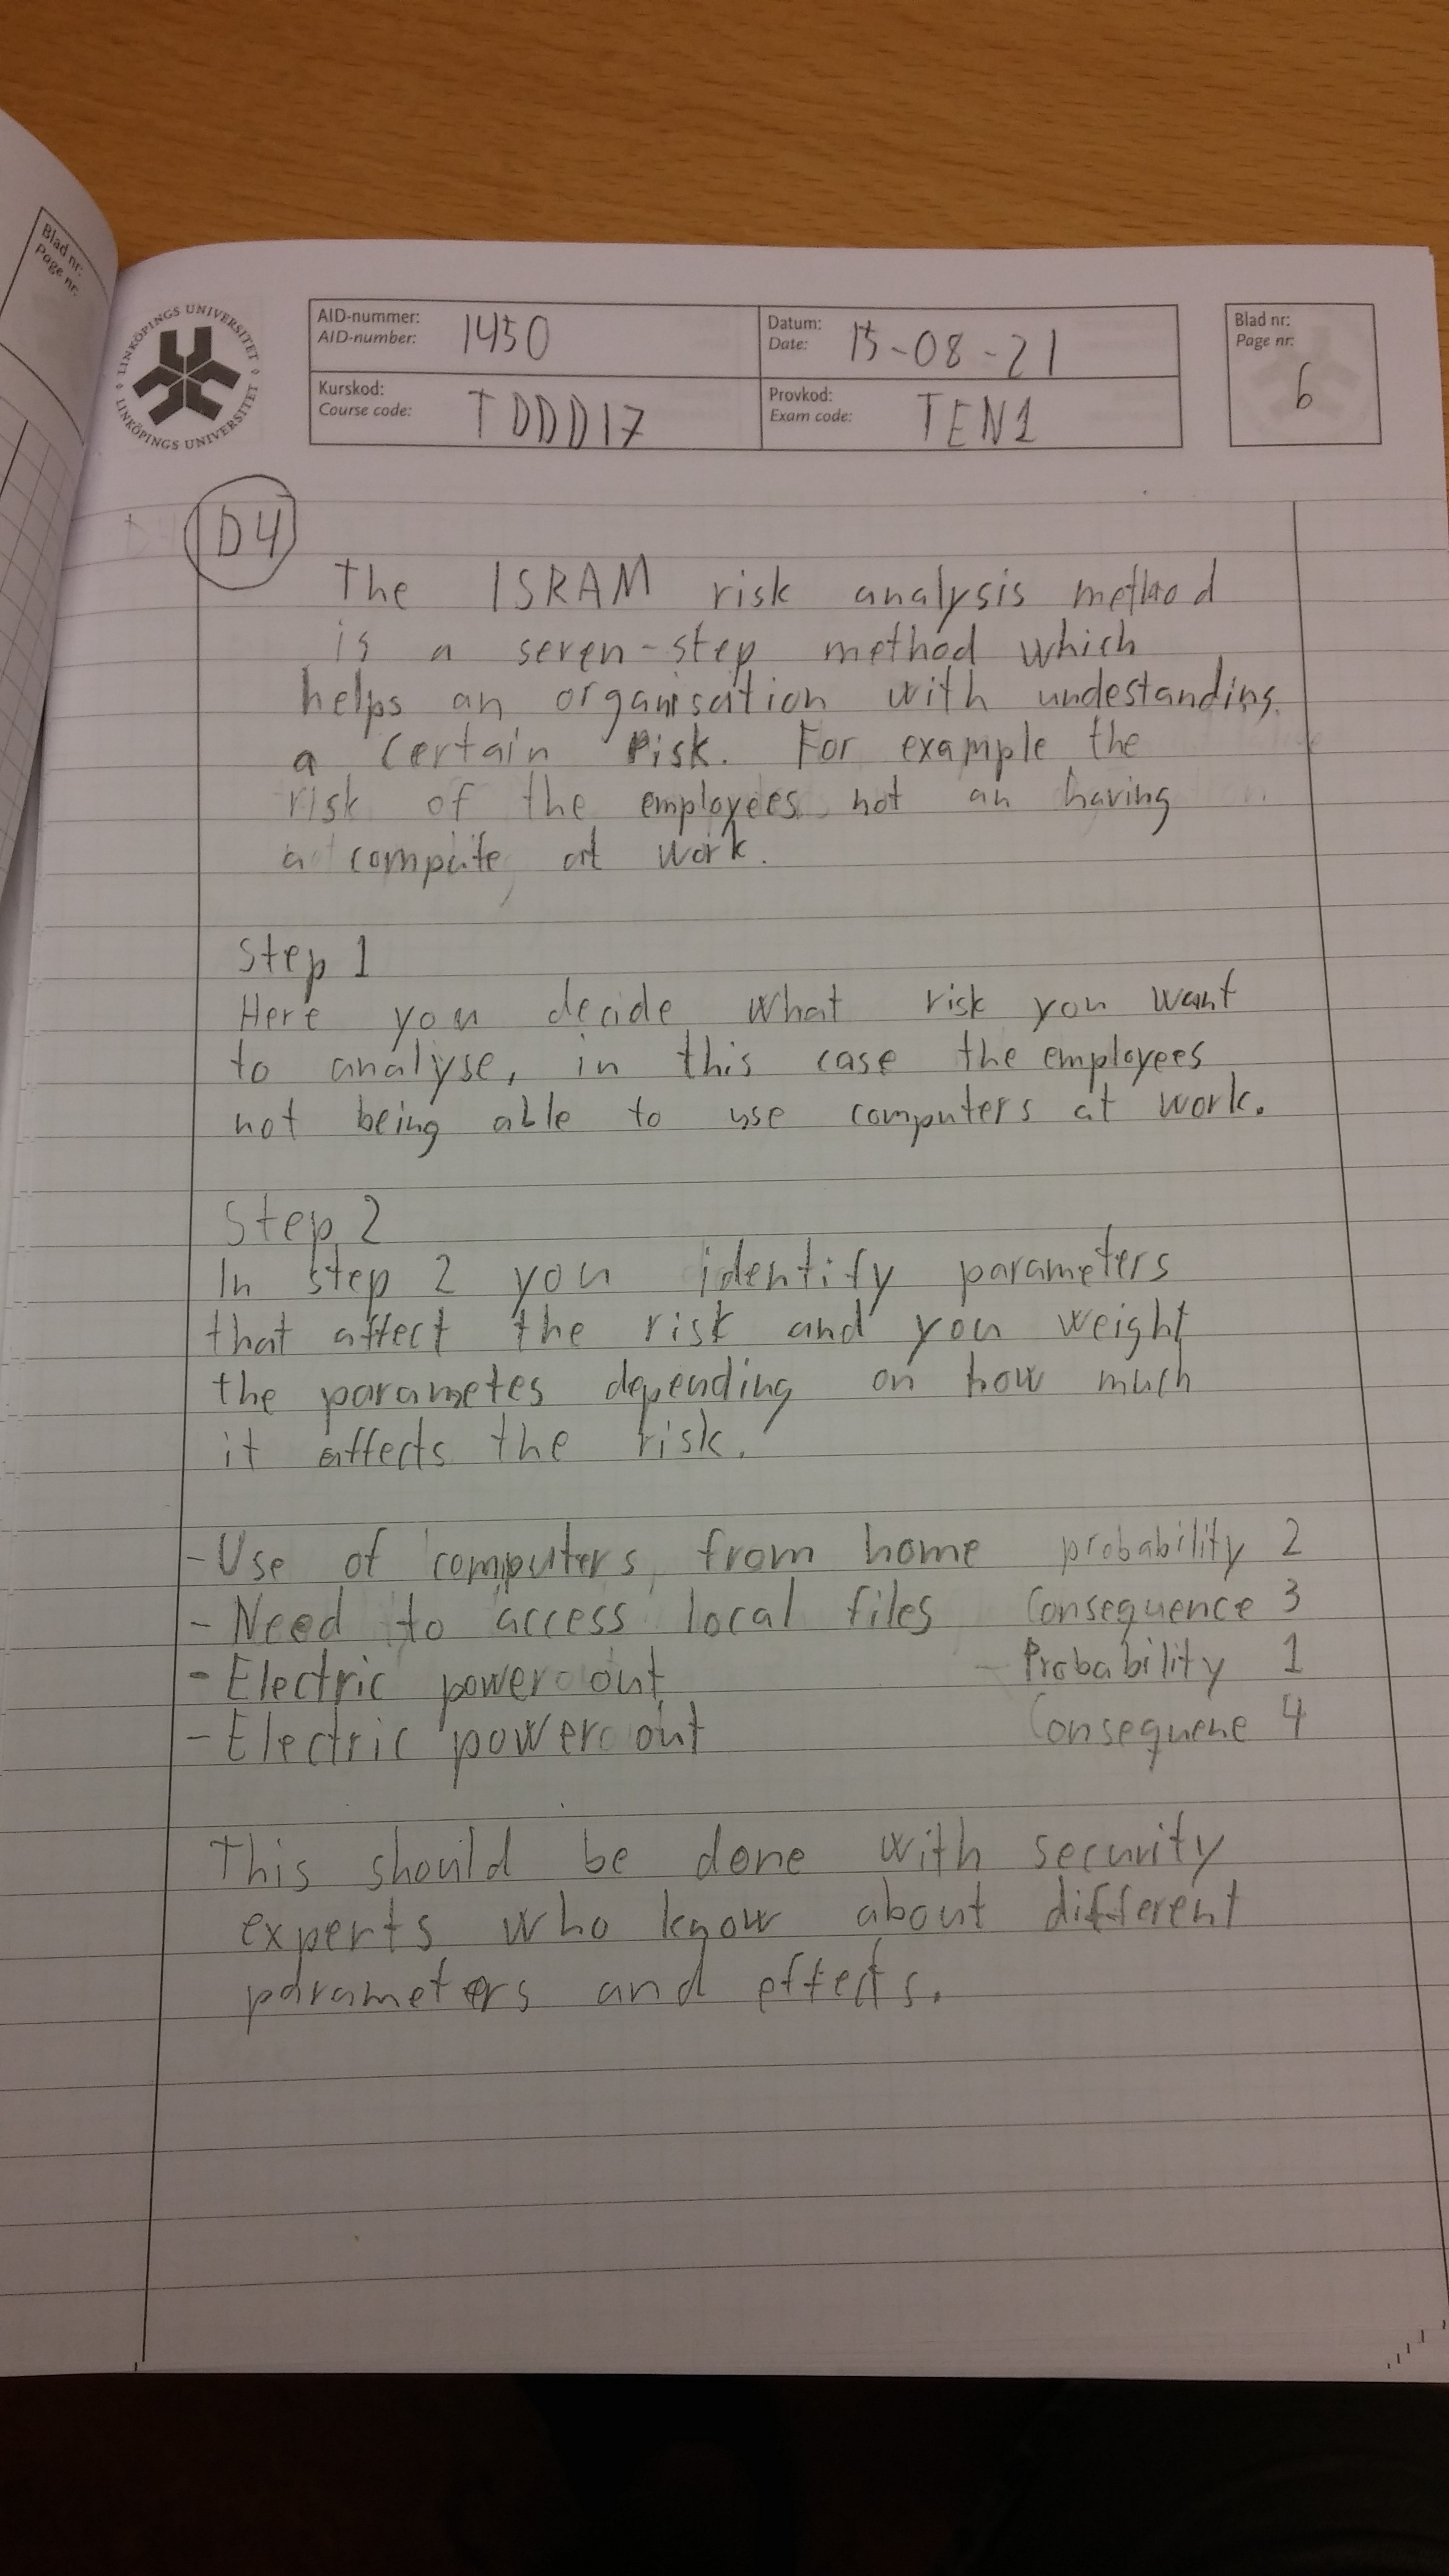 Blad nr:
Page nr:
LINKÖPINGS UNIVERSITET
LINKÖPINGS UNIVERSITET
AID-nummer:
AID-number: 1450
Datum:
Date: 15-08-21
Blad nr:
Page nr:
6
Kurskod:
Course code: TDDD17
Provkod:
Exam code: TEN1
D4
The ISRAM risk analysis method
is a seven-step method which
helps an organisation with undestanding
a certain risk. For example the
risk of the employees not an having
a compute at work.
Step 1
Here you decide what risk you want
to analyse, in this case the employees
not being able to use computers at work.
Step 2
In step 2 you identify parameters
that affect the risk and you weight
the parametes depending on how much
it affects the risk.
- Use of computers from home probability 2
- Need to access local files Consequence 3
- Electric power out - Probability 1
- Electric power out Consequene 4
This should be done with security
experts who know about different
parameters and effects.